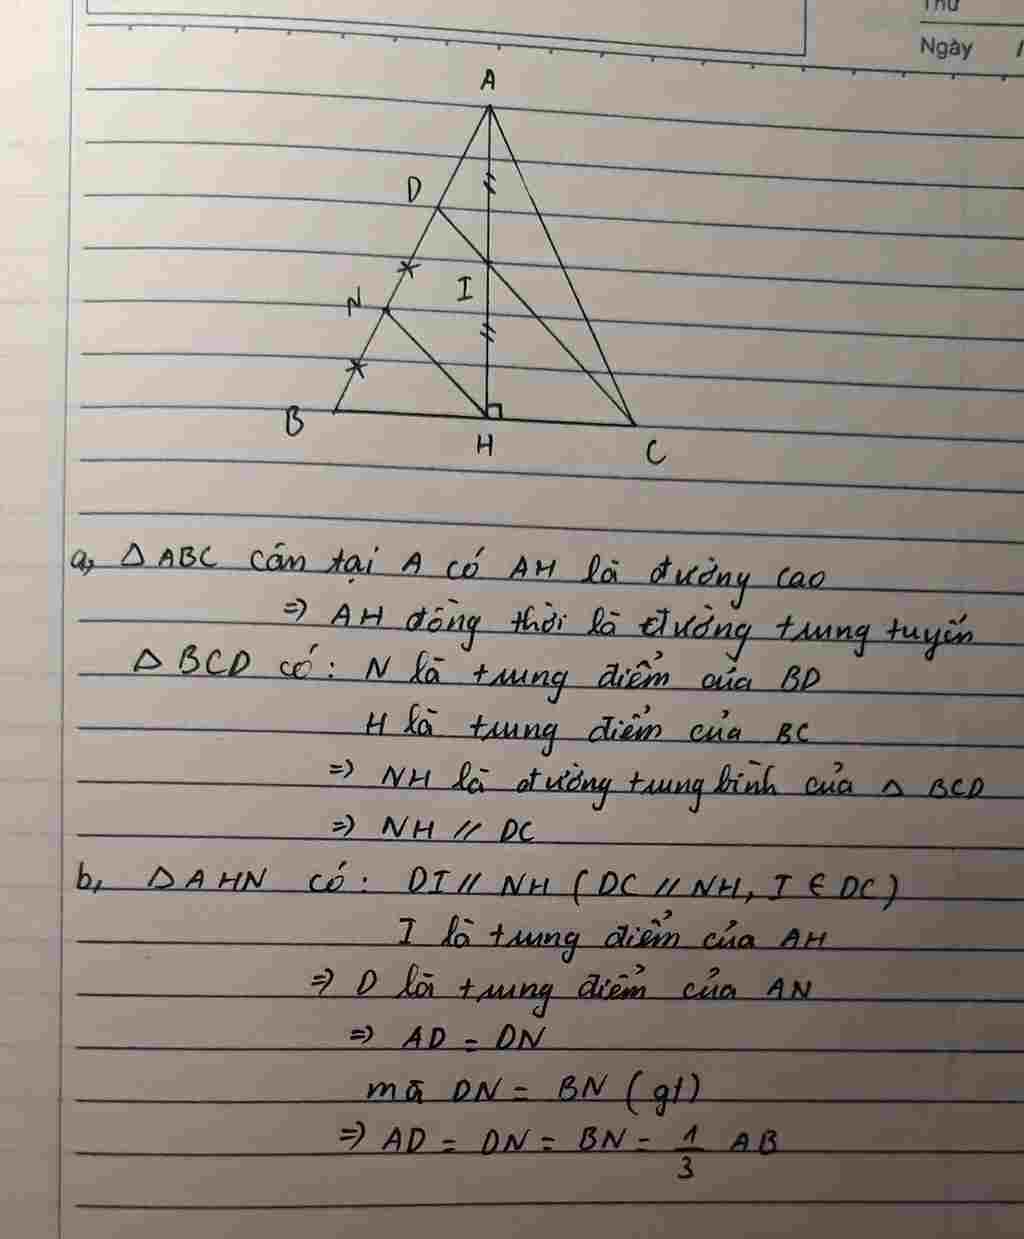 Thứ
Ngày
A
D
I
N
B
H
C
a, △ABC cân tại A có AH là đường cao
=> AH đồng thời là đường trung tuyến
△BCD có: N là trung điểm của BD
H là trung điểm của BC
=> NH là đường trung bình của △ BCD
=> NH // DC
b, △AHN có: DI // NH (DC // NH, I ∈ DC)
I là trung điểm của AH
=> D là trung điểm của AN
=> AD = DN
mà DN = BN (gt)
=> AD = DN = BN = 1/3 AB